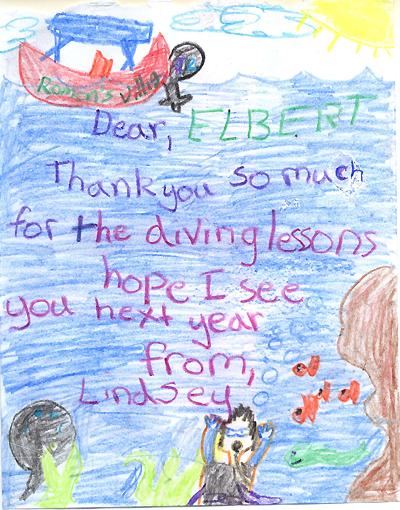 Romon's Villa
Dear, ELBERT
Thank you so much
for the diving lessons
hope I see
you next year
from,
Lindsey